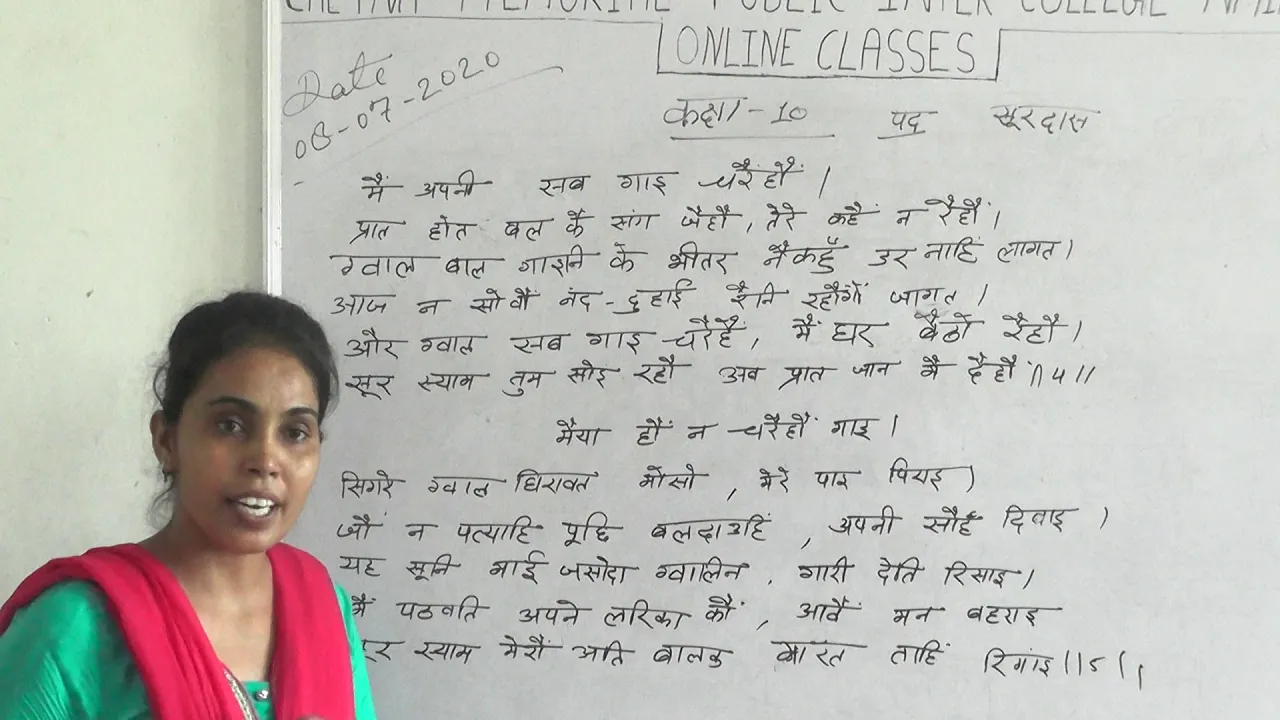 CHETNA MEMORIAL PUBLIC INTER COLLEGE
ONLINE CLASSES
Date
08-07-2020
कक्षा-10 पद सूरदास
मैं अपनी सब गाइ चरैहौं ।
प्रात होत बल कै संग जैहौं, तेरे कहैं न रैहौं ।
ग्वाल बाल गाइनि के भीतर नैकहुँ डर नाहिं लागत ।
आज न सोवौं नंद-दुहाई रैनि रहौंगौं जागत ।
और ग्वाल सब गाइ चरैहैं, मैं घर बैठौ रैहौं ।
सूर स्याम तुम सोइ रहौ अब प्रात जान मैं दैहौं ॥4॥
मैया हौं न चरैहौं गाइ ।
सिगरे ग्वाल घिरावत मोंसो, मेरे पाइ पिराइ ।
जौं न पत्याहि पूछि बलदाउहिं, अपनी सौहँ दिवाइ ।
यह सूनि माई जसोदा ग्वालिन, गारी देति रिसाइ ।
मैं पठवति अपने लरिका कौं, आवैं मन बहराइ
सूर स्याम मेरौं अति बालक मारत ताहिं रिगांइ ॥5॥